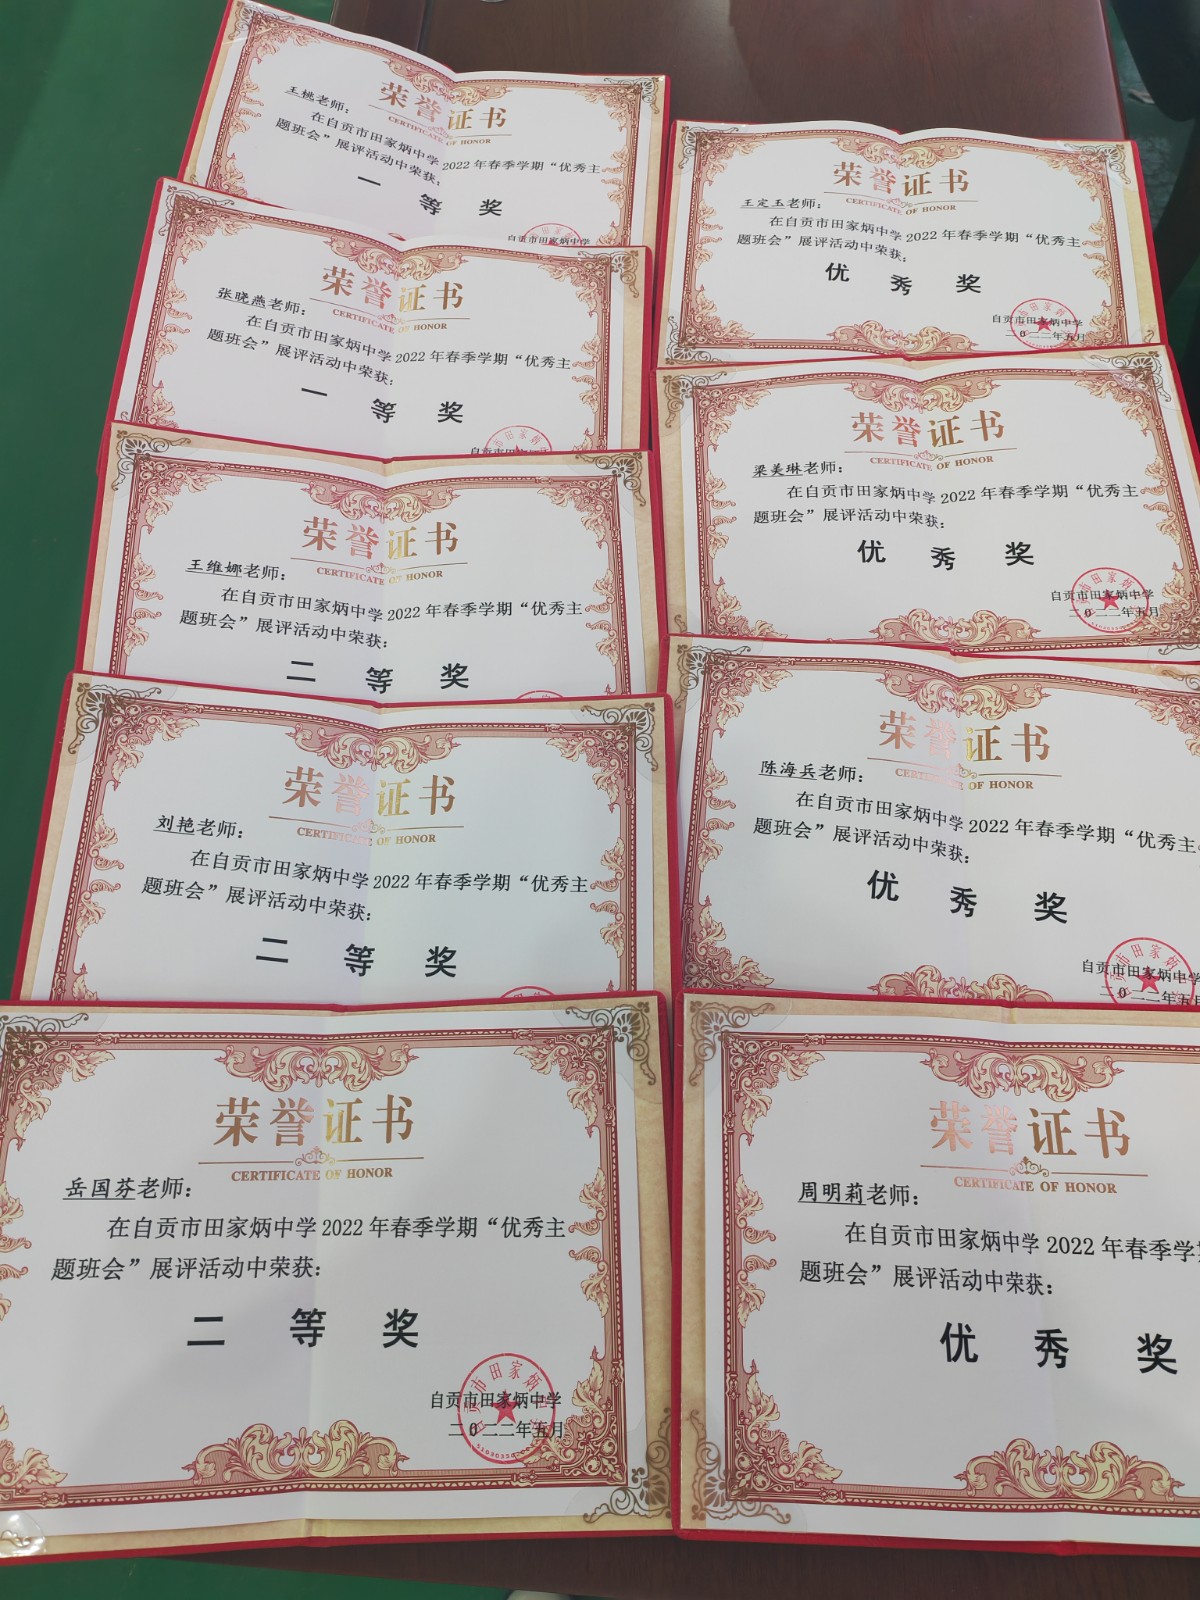 荣誉证书
CERTIFICATE OF HONOR
王桃老师：
在自贡市田家炳中学2022年春季学期“优秀主
题班会”展评活动中荣获：
一等奖
自贡市田家炳中学
荣誉证书
CERTIFICATE OF HONOR
张晓燕老师：
在自贡市田家炳中学2022年春季学期“优秀主
题班会”展评活动中荣获：
一等奖
荣誉证书
CERTIFICATE OF HONOR
王维娜老师：
在自贡市田家炳中学2022年春季学期“优秀主
题班会”展评活动中荣获：
二等奖
荣誉证书
CERTIFICATE OF HONOR
刘艳老师：
在自贡市田家炳中学2022年春季学期“优秀主
题班会”展评活动中荣获：
二等奖
荣誉证书
CERTIFICATE OF HONOR
岳国芬老师：
在自贡市田家炳中学2022年春季学期“优秀主
题班会”展评活动中荣获：
二等奖
自贡市田家炳中学
二0二二年五月
荣誉证书
CERTIFICATE OF HONOR
王定玉老师：
在自贡市田家炳中学2022年春季学期“优秀主
题班会”展评活动中荣获：
优秀奖
自贡市田家炳中学
二0二二年五月
荣誉证书
CERTIFICATE OF HONOR
梁美琳老师：
在自贡市田家炳中学2022年春季学期“优秀主
题班会”展评活动中荣获：
优秀奖
自贡市田家炳中学
二0二二年五月
荣誉证书
CERTIFICATE OF HONOR
陈海兵老师：
在自贡市田家炳中学2022年春季学期“优秀主
题班会”展评活动中荣获：
优秀奖
自贡市田家炳中学
二0二二年五月
荣誉证书
CERTIFICATE OF HONOR
周明莉老师：
在自贡市田家炳中学2022年春季学
题班会”展评活动中荣获：
优秀奖